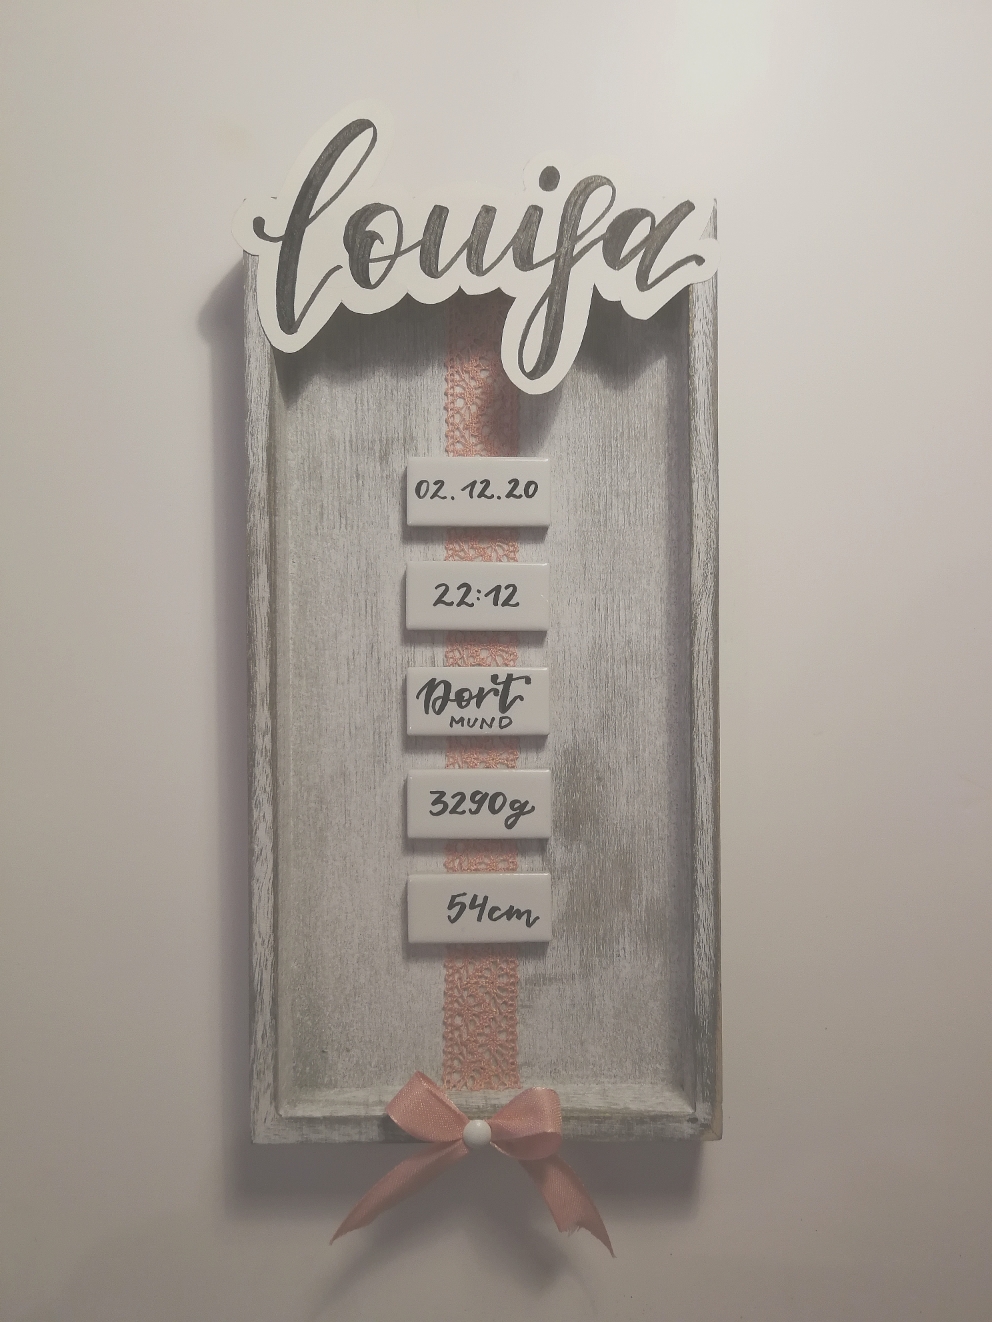 louisa
02.12.20
22:12
Dort
MUND
3290g
54cm